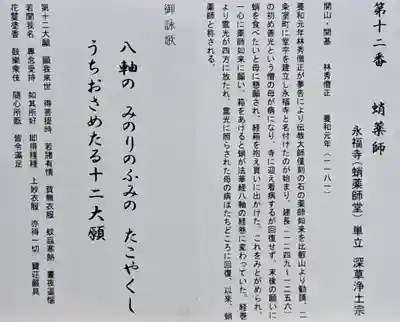 第十二番　蛸薬師
永福寺（蛸薬師堂）　単立　深草浄土宗
開山・開基　　林秀僧正　　養和元年（一一八一）
養和元年林秀僧正が夢告により伝教大師僅刻の石の薬師如来を比叡山より勧請、二
条室町に堂宇を建立し永福寺と名付けたのが始まり。建長（一二四九～一二五六）
の初め善光という僧の母が病になり、寺に迎え看病するが回復せず、末後の願いに
蛸を食べたいと母に懇願され、経箱を抱え買いに出かけた。これをみとがめられ、
一心に薬師如来に願い、箱をあけると蛸が法華経八軸の経巻に変わっていた。経巻
より霊光が四方に放たれ、霊光に照らされた母の病はたちどころに回復、以来、蛸
薬師と称される。
御詠歌
八軸の　みのりのふみの　たこやくし
うちおさめたる十二大願
第十二大願　願我来世　得菩提時　若諸有情　貧無衣服　蚊虻寒熱　晝夜逼惱
若聞我名　専念受持　如其所好　即得種種　上妙衣服　亦得一切　寶荘嚴具
花鬘塗香　鼓樂衆伎　随心所翫　皆令滿足